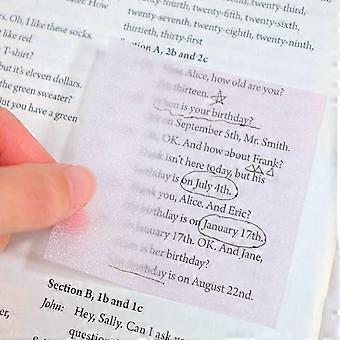 twenty-third,
rth, twenty-fifth, twenty-sixth,
s. Oh, I like these socks.
twenty-seventh, twenty-eighth, twenty-ninth,
like red.
thirtieth, thirty-first
T-shirt?
Section A, 2b and 2c
but it's eleven dollars.
Alice, how old are you?
the green sweater?
thirteen.
But you have a green
is your birthday?
on September 5th, Mr. Smith.
OK. And how about Frank?
isn't here today, but his
birthday is on July 4th.
you, Alice. And Eric?
birthday is on January 17th.
January 17th. OK. And Jane,
is her birthday?
birthday is on August 22nd.
Section B, 1b and 1c
John: Hey, Sally. Can I ask
question